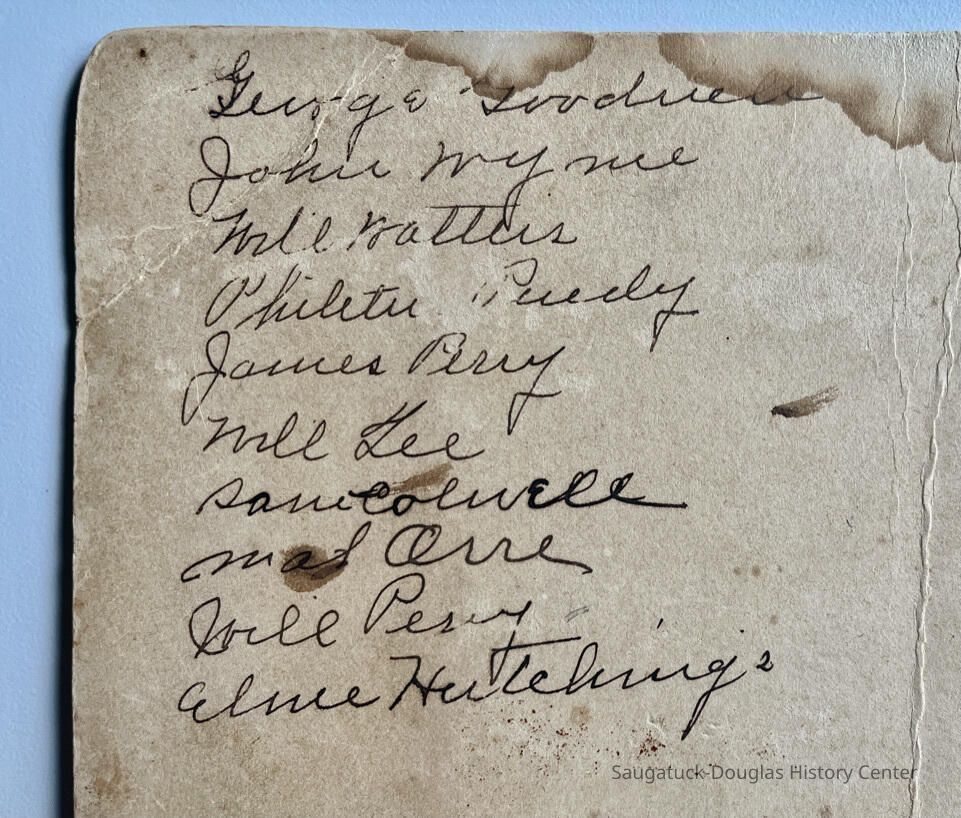 George Goodrich
John Wyne
Will Watters
Philetu Purdy
James Perry
Will Lee
Sam Colwell
Orre
Will Perry
Elme Hutchings
Saugatuck-Douglas History Center